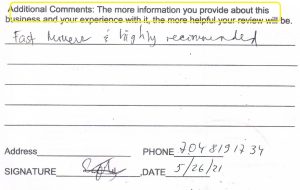 Additional Comments: The more information you provide about this
business and your experience with it, the more helpful your review will be.
Fast Movers & highly recommended
Address PHONE 704 819 17 34
SIGNATURE DATE 5/26/21